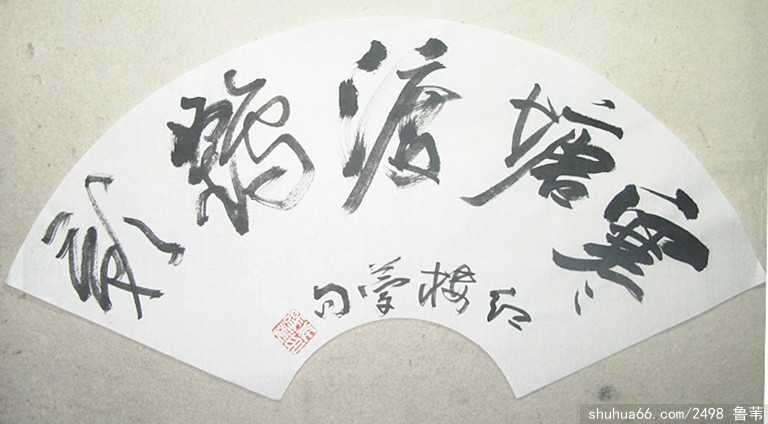 寒塘渡鶴影
红楼夢句
shuhua66.com/2498 鲁苇